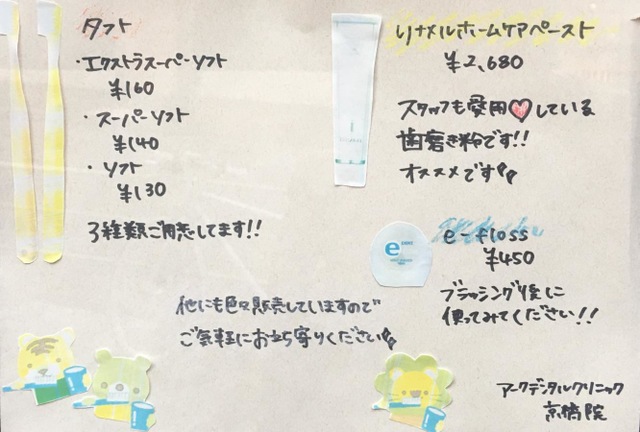 タフト
・エクストラスーパーソフト
¥160
・スーパーソフト
¥140
・ソフト
¥130
3種類ご用意してます!!
リナメルホームケアペースト
¥2,680
スタッフも愛用♡している
歯磨き粉です!!
オススメです
e-floss
¥450
ブラッシング後に
使ってみてください!!
他にも色々販売していますので
ご気軽にお立ち寄りください
アークデンタルクリニック
京橋院
e